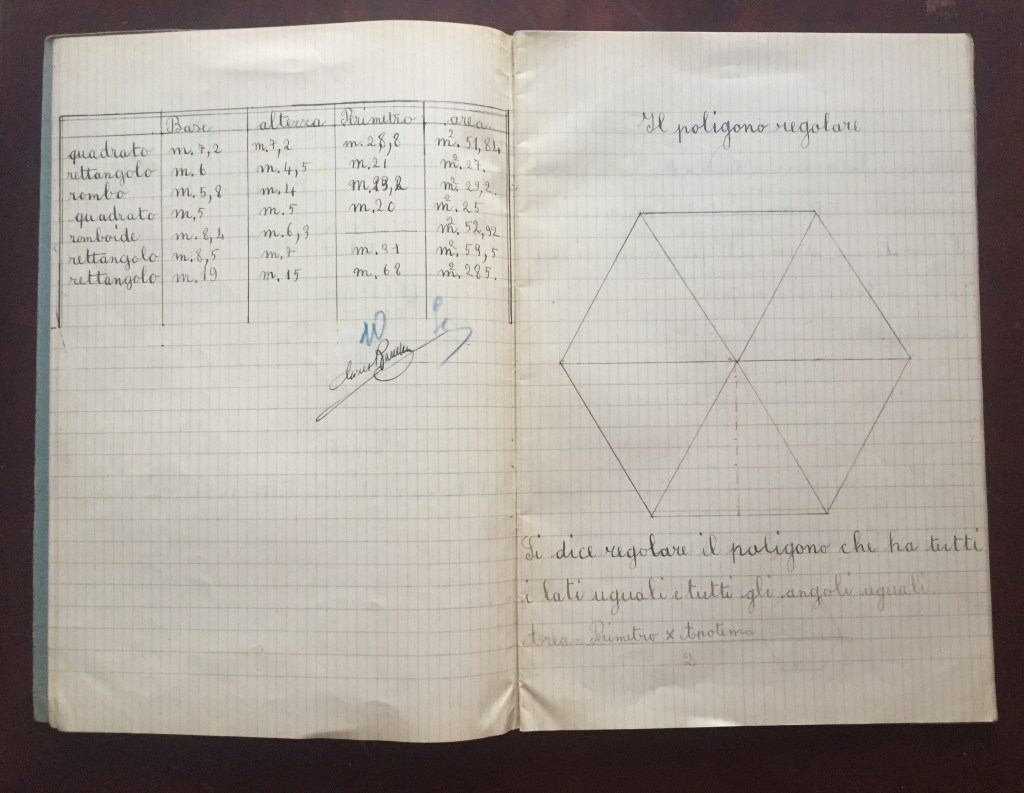 Base altezza Perimetro area
quadrato m. 7,2 m. 7,2 m. 28,8 m². 51,84
rettangolo m. 6 m. 4,5 m. 21 m². 27.
rombo m. 5,8 m. 4 m. 23,2 m². 23,2.
quadrato m. 5 m. 5 m. 20 m². 25
romboide m. 8,4 m. 6,3 m². 52,92
rettangolo m. 8,5 m. 7 m. 31 m². 59,5
rettangolo m. 19 m. 15 m. 68 m². 285.
10
Il poligono regolare
Si dice regolare il poligono che ha tutti
i lati uguali e tutti gli angoli uguali.
Area = Perimetro x Apotema
2